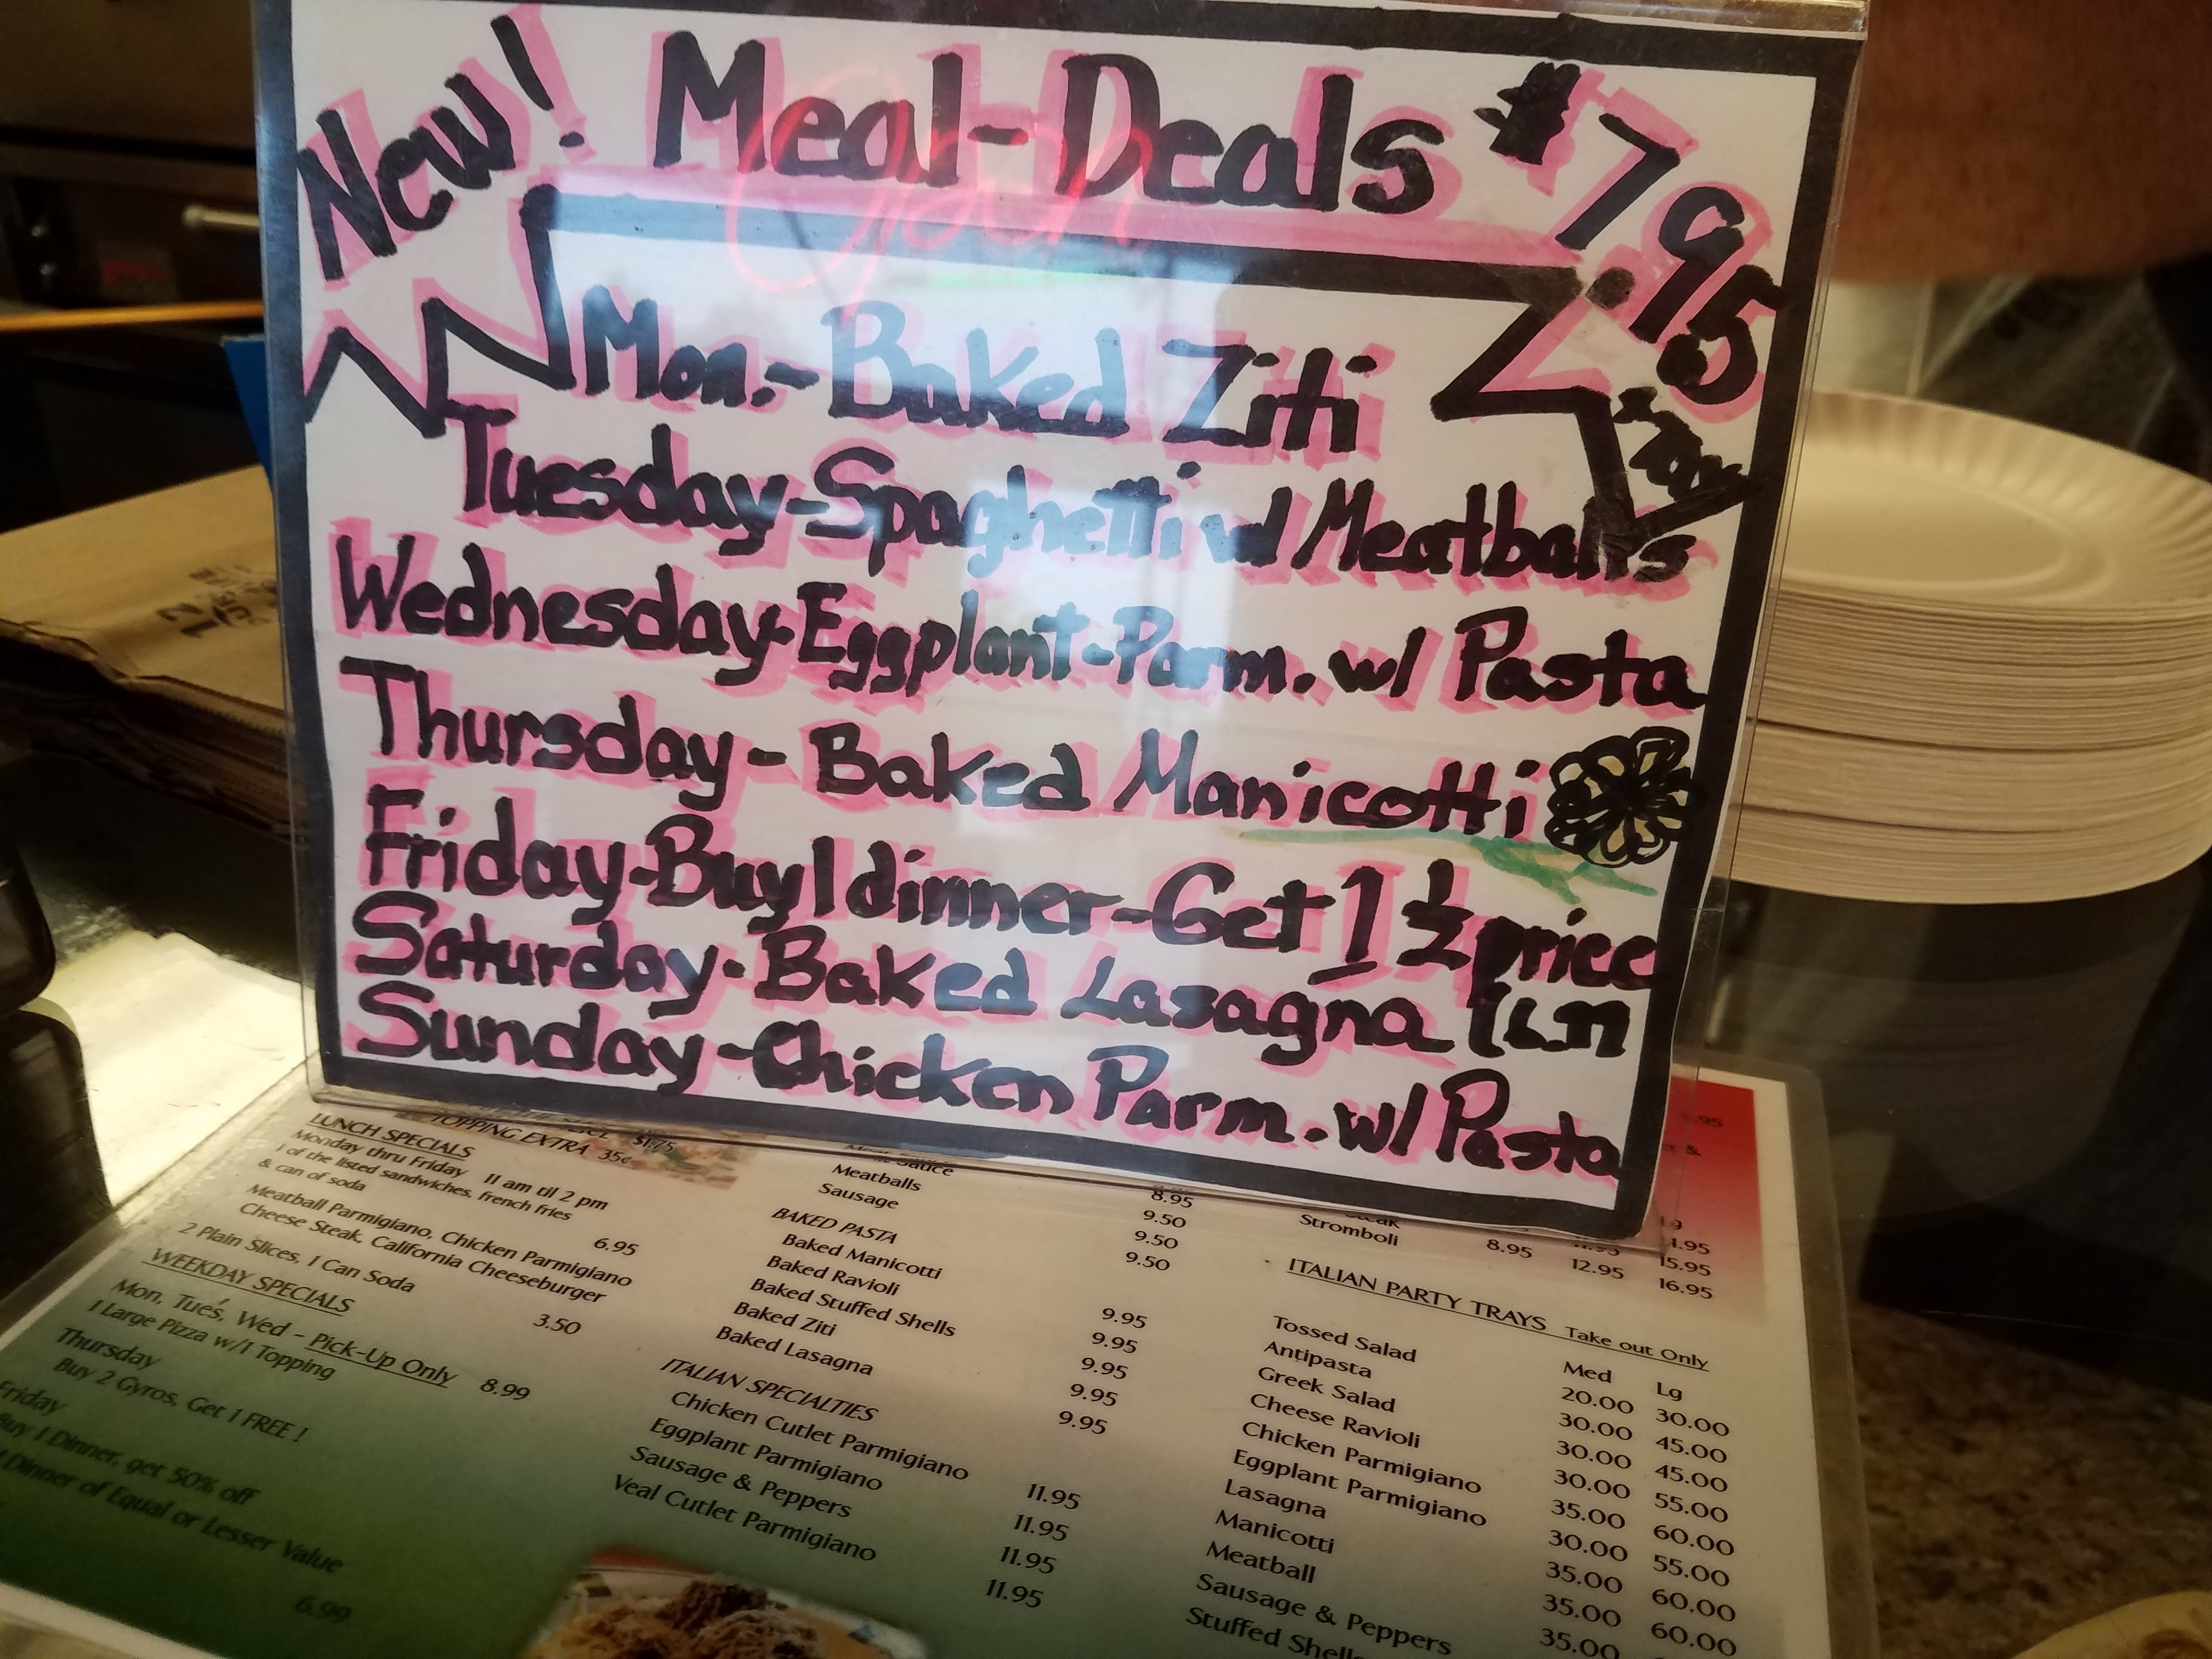 New! Meal-Deals $7.95
+Tax
Mon.- Baked Ziti
Tuesday-Spaghetti w/ Meatballs
Wednesday-Eggplant-Parm. w/ Pasta
Thursday- Baked Manicotti
Friday-Buy 1 dinner-Get 1 ½ price
Saturday-Baked Lasagna
Sunday-Chicken Parm. w/ Pasta
Open
TOPPING EXTRA 35¢
$1.75
LUNCH SPECIALS
Monday thru Friday 11 am til 2 pm
1 of the listed sandwiches, french fries
& can of soda 6.95
Meatball Parmigiano, Chicken Parmigiano
Cheese Steak, California Cheeseburger
2 Plain Slices, 1 Can Soda 3.50
WEEKDAY SPECIALS
Mon, Tues, Wed - Pick-Up Only
1 Large Pizza w/1 Topping 8.99
Thursday
Buy 2 Gyros, Get 1 FREE !
Friday
Buy 1 Dinner, get 50% off
Dinner of Equal or Lesser Value
6.99
Sauce 8.95
Meatballs 9.50
Sausage 9.50
9.50
BAKED PASTA
Baked Manicotti 9.95
Baked Ravioli 9.95
Baked Stuffed Shells 9.95
Baked Ziti 9.95
Baked Lasagna 9.95
ITALIAN SPECIALTIES
Chicken Cutlet Parmigiano 11.95
Eggplant Parmigiano 11.95
Sausage & Peppers 11.95
Veal Cutlet Parmigiano 11.95
Lg
Stromboli 8.95 12.95 16.95
15.95
ITALIAN PARTY TRAYS Take out Only
Med Lg
Tossed Salad 20.00 30.00
Antipasta 30.00 45.00
Greek Salad 30.00 45.00
Cheese Ravioli 30.00 55.00
Chicken Parmigiano 35.00 60.00
Eggplant Parmigiano 30.00 55.00
Lasagna 35.00 60.00
Manicotti 35.00 60.00
Meatball 35.00
Sausage & Peppers
Stuffed Shells